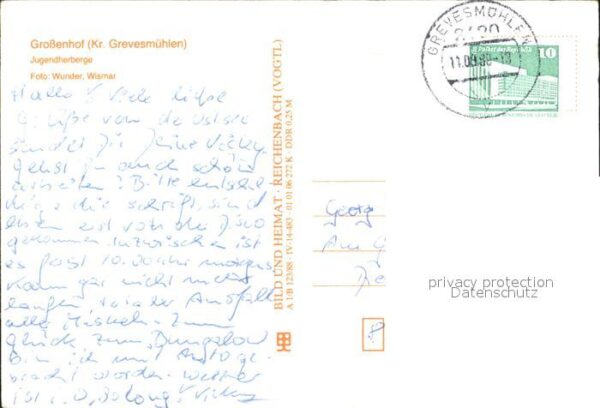 Großenhof (Kr. Grevesmühlen)
Jugendherberge
Foto: Wunder, Wismar
Hallo! Viele liebe
Grüße von de Ostsee
sendet Dir Deine Vicky
gehst Du auch schön
arbeiten? Bitte entschul
dige die Schrift, sind
eben erst von der Disco
gekommen. Inzwischen ist
es fast
kann gar nicht mehr
alle Muskeln. Zum
Glück zum Bungalow
Bin ich mit Auto ge
bracht worden. Wetter
ist i.O. Bis
BILD UND HEIMAT · REICHENBACH (VOGTL)
A 1/B 123/88 · IV-14-483 · 01 01 06 272 K DDR 0,25 M
GREVESMÜHLEN
2420
11.09.90-18
Palast der Republik
10
Georg
Am G
privacy protection
Datenschutz